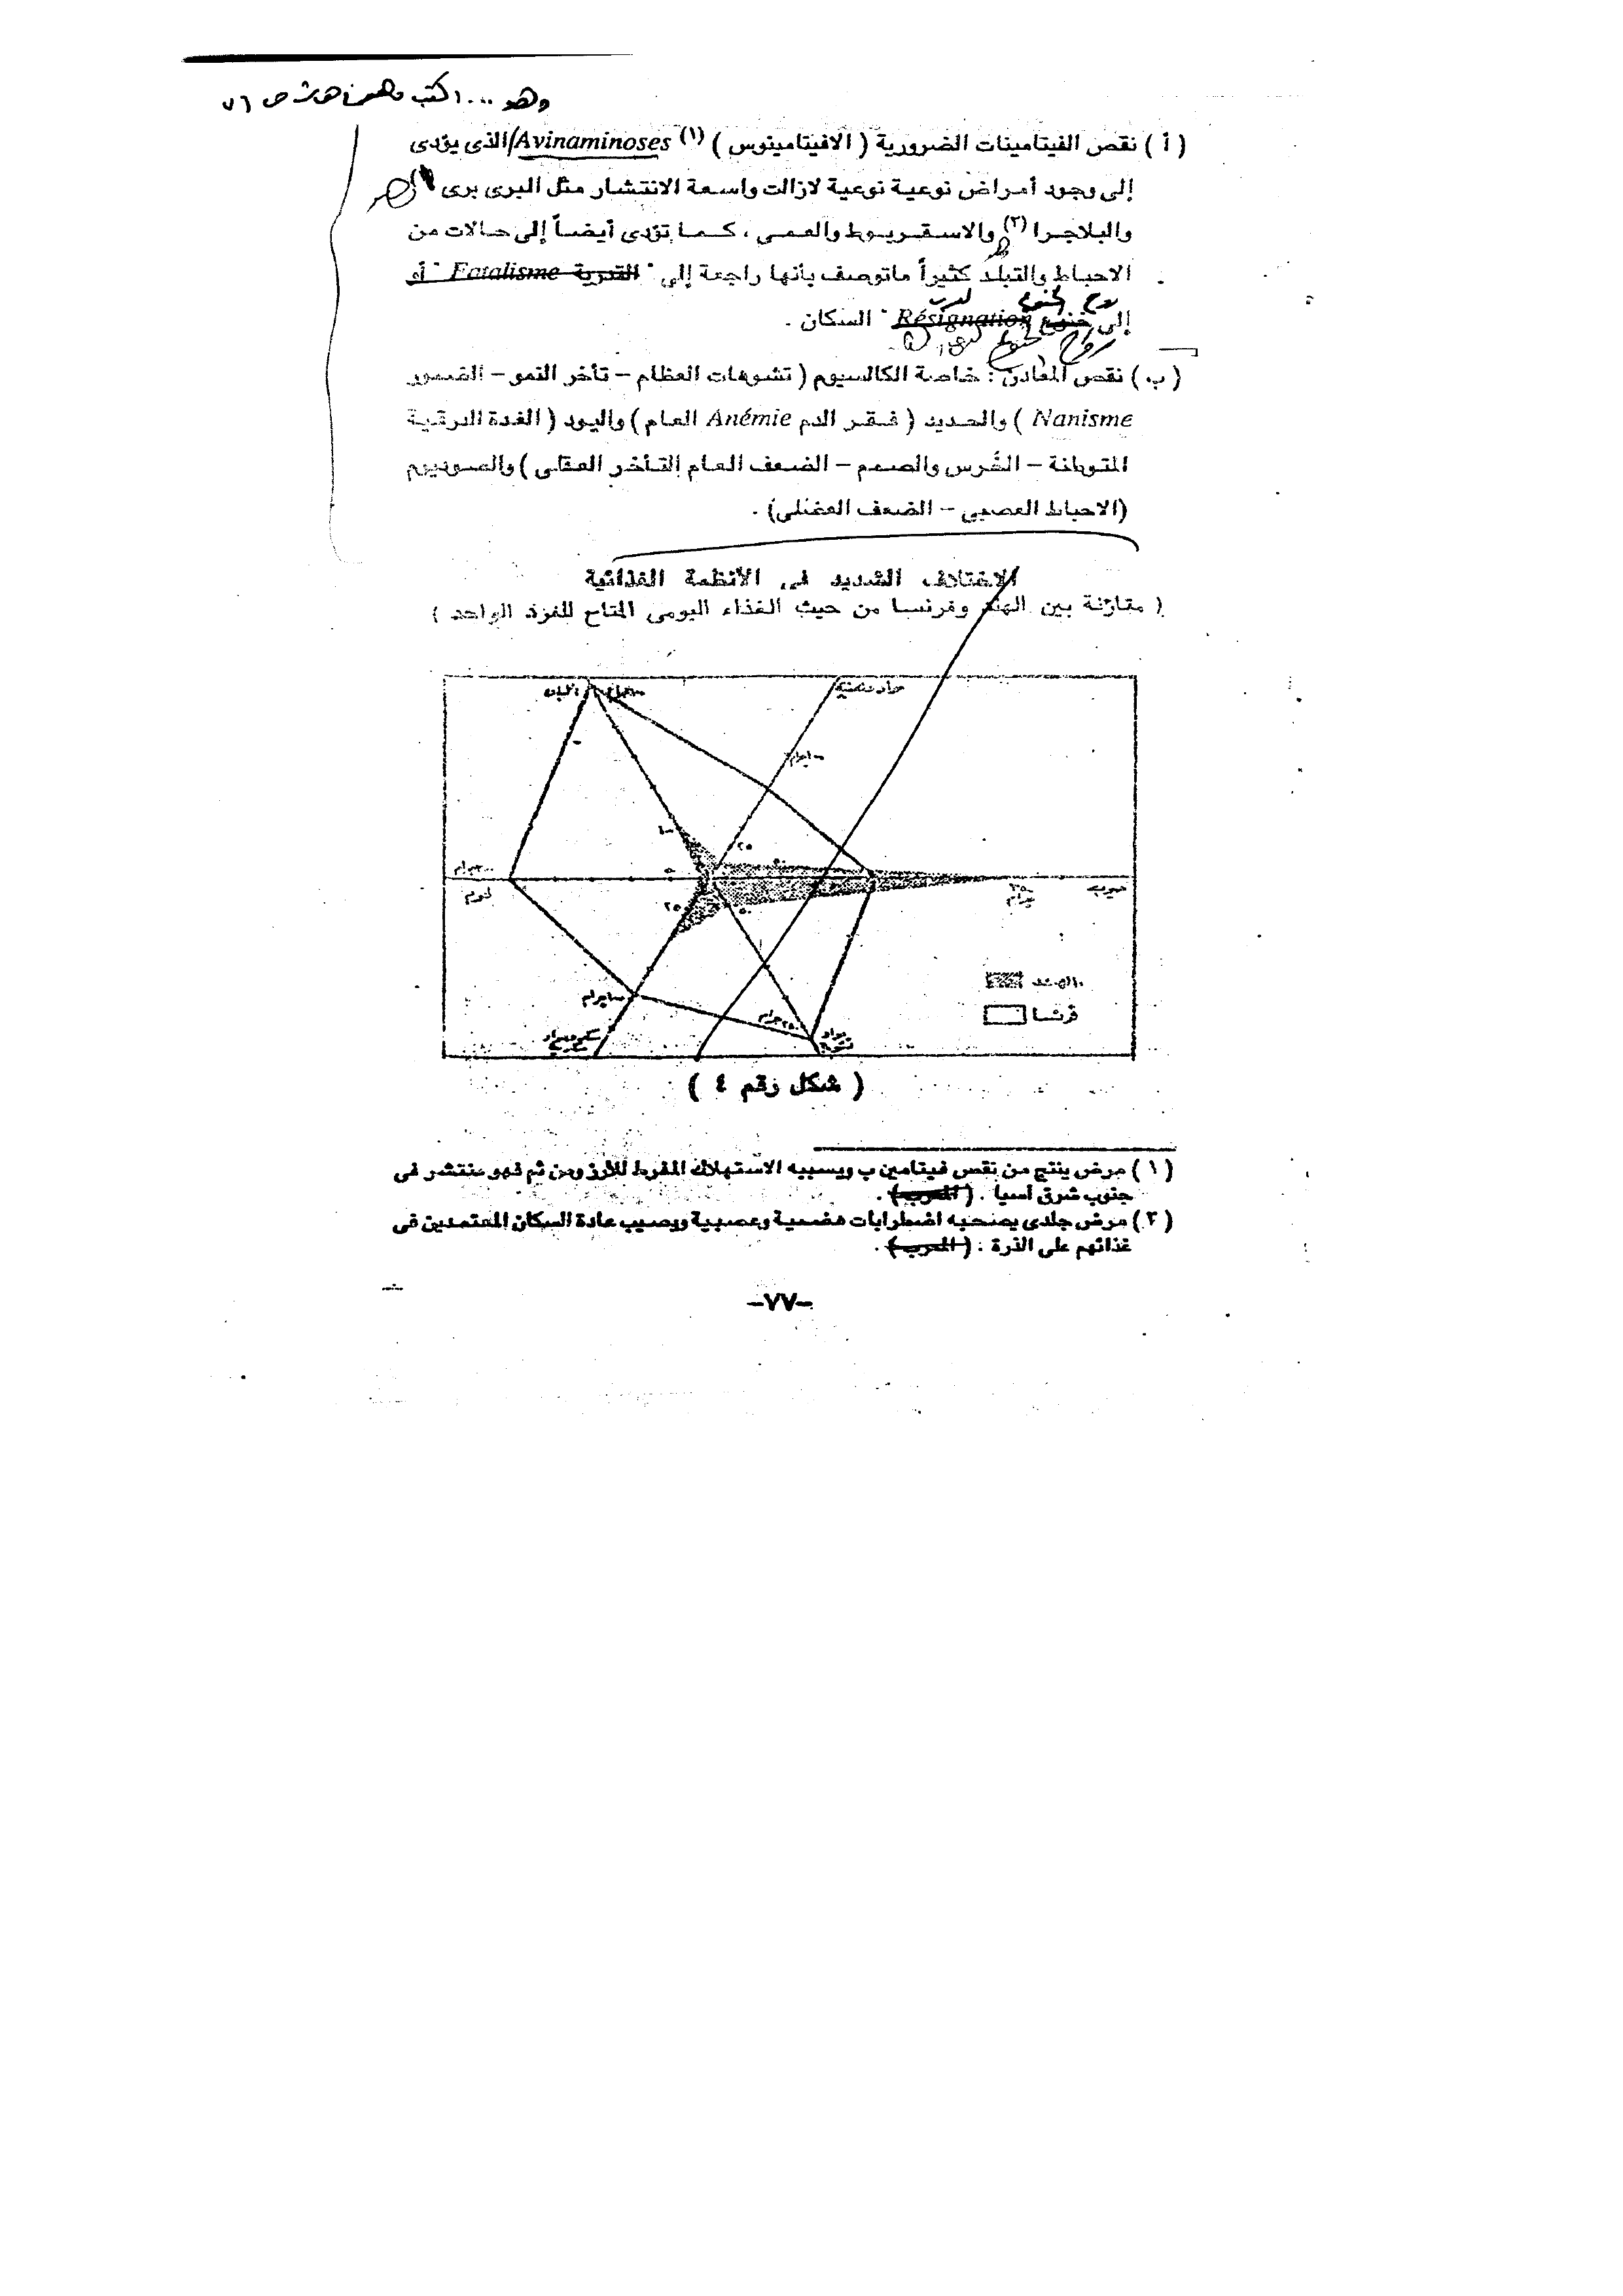 وهو ... اكتب هامش ص ٧٦
( أ ) نقص الفيتامينات الضرورية ( الافيتامينوس ) Avinaminoses (١) الذى يؤدى
إلى وجود أمراض نوعية نوعية لازالت واسعة الانتشار مثل البرى برى
والبلاجرا (٢) والاسقربوط والعمى ، كما تؤدى أيضاً إلى حالات من
الاحباط والتبلد كثيراً ماتوصف بأنها راجعة إلى " القدرية Fatalisme " أو
روح الخنوع لدى
إلى خنوع Résignation " السكان .
( ب ) نقص المعادن : خاصة الكالسيوم ( تشوهات العظام – تأخر النمو – الضمور
Nanisme ) والحديد ( فقر الدم Anémie العام ) واليود ( الغدة الدرقية
المتوطنة – الشرس والصمم – الضعف العام التأخر العقلى ) والصوديوم
(الاحباط العصبى – الضعف العضلى) .
الاختلاف الشديد فى الأنظمة الغذائية
( مقارنة بين الهند وفرنسا من حيث الغذاء اليومى المتاح للفرد الواحد )
ألبان
مواد دهنية
١٠٠
٢٥
٥٠
جرام
٥٠
لحوم
حبوب
٣٥٠
جرام
٢٥
٥٠
الهند
فرنسا
جرام
٢٥٠ جرام
سكر ومواد
سكرية
مواد
نشوية
( شكل رقم ٤ )
( ١ ) مرض ينتج من نقص فيتامين ب ويسببه الاستهلاك المفرط للأرز ومن ثم فهو منتشر فى
جنوب شرق أسيا . ( المعرب ) .
( ٢ ) مرض جلدى يصحبه اضطرابات هضمية وعصبية ويصيب عادة السكان المعتمدين فى
غذائهم على الذرة : ( المعرب ) .
–٧٧–